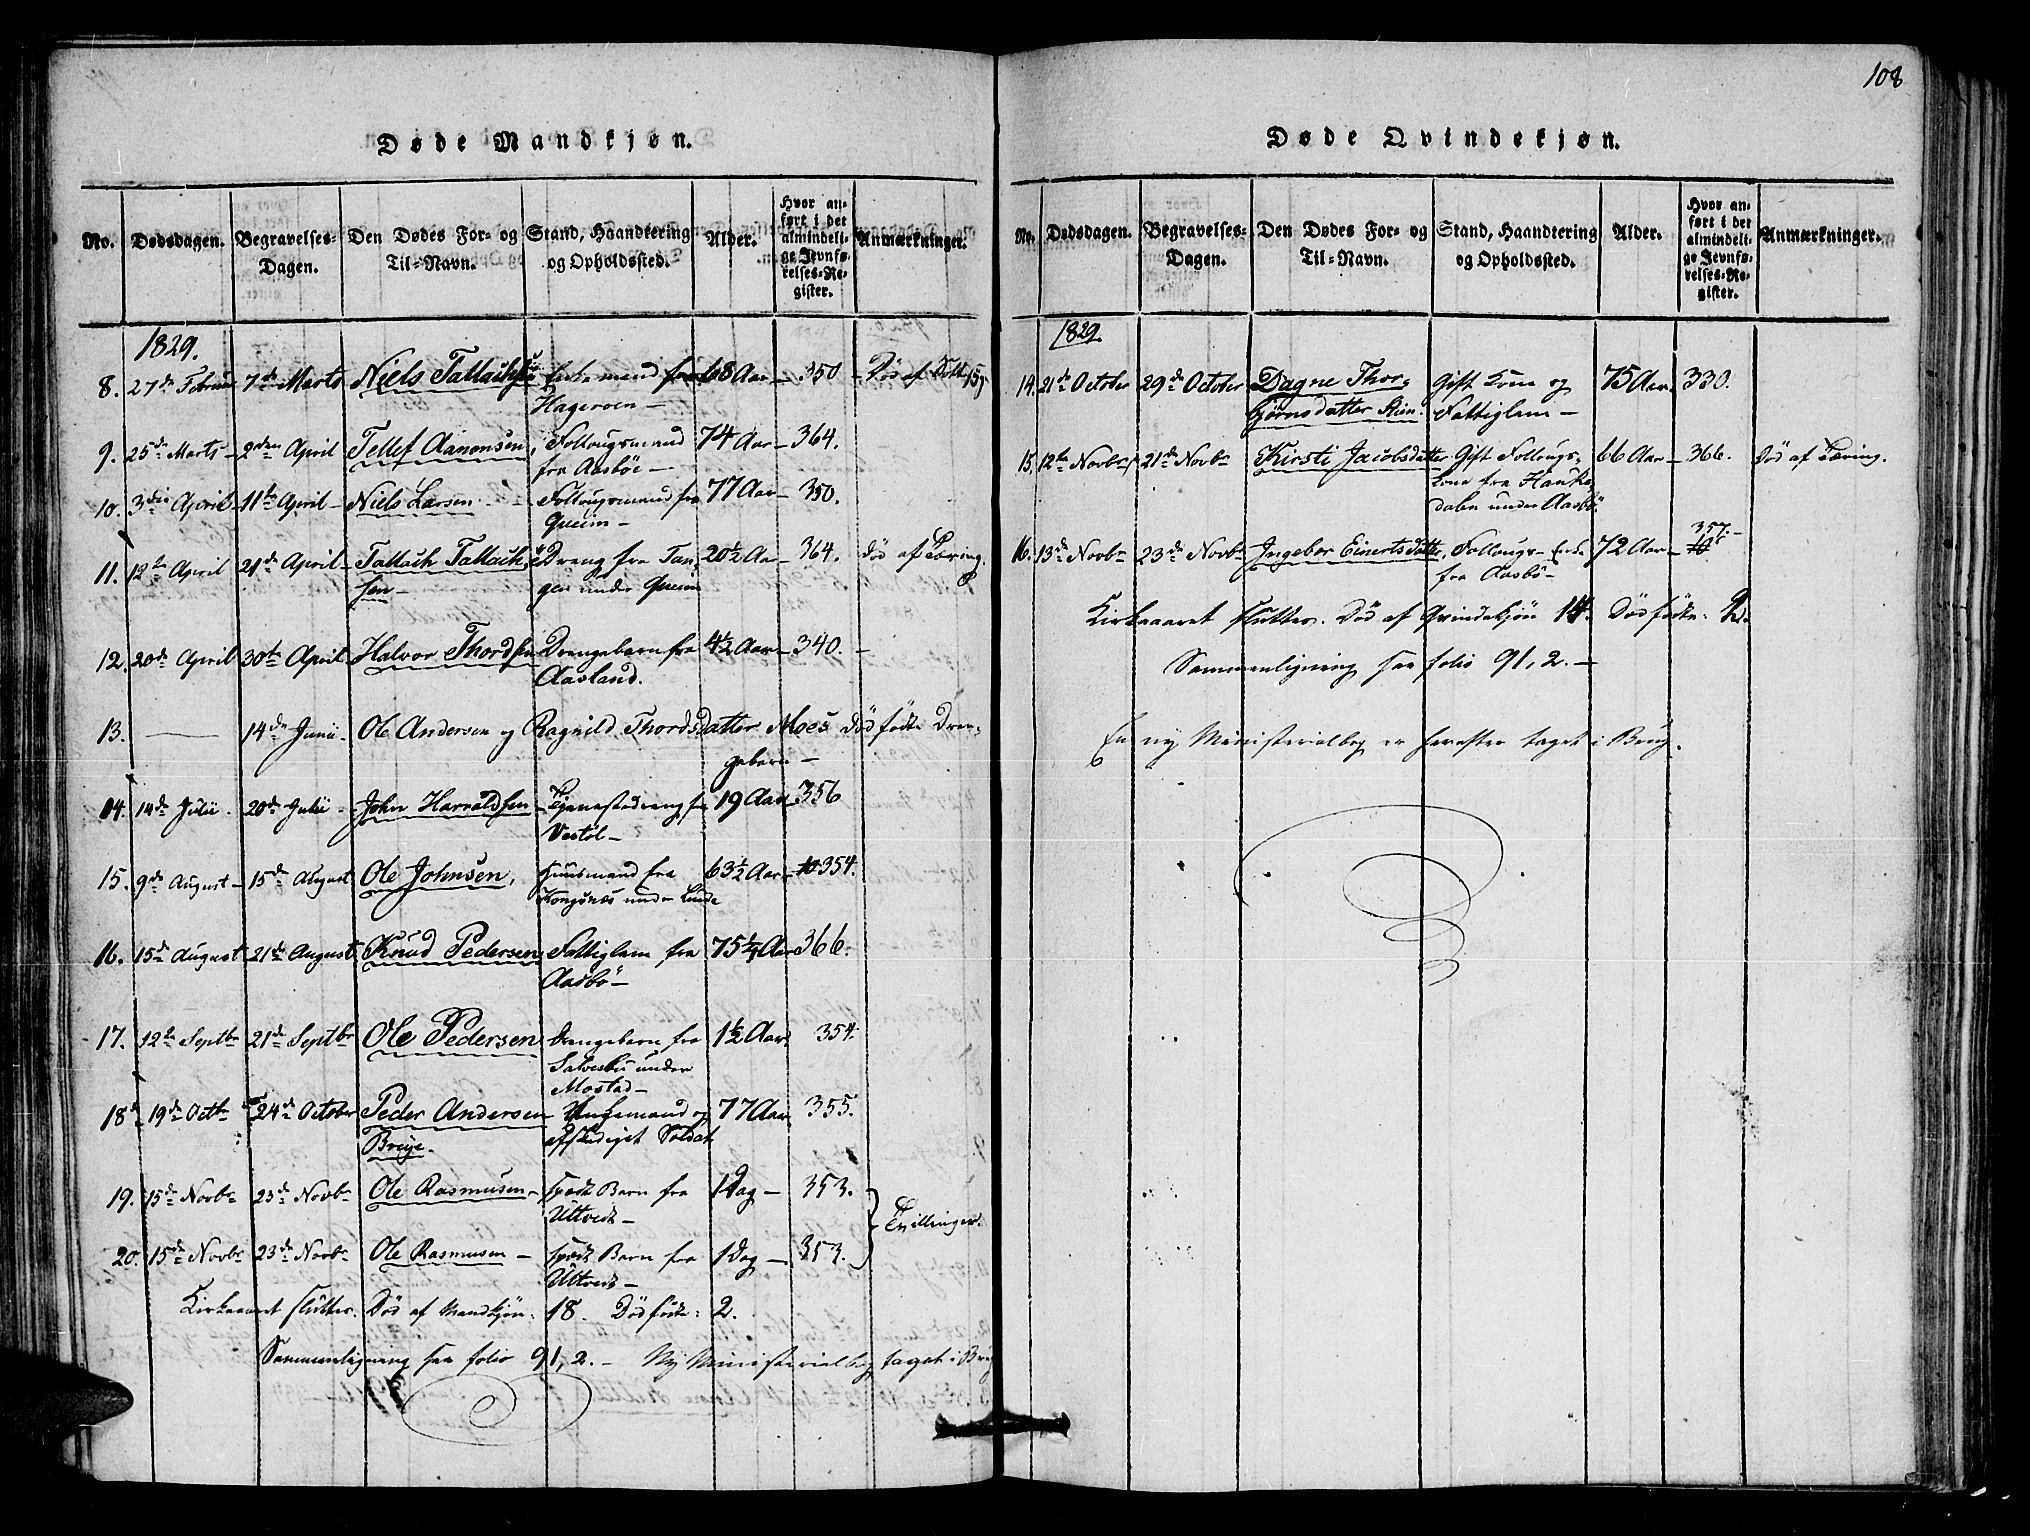 108
Døde Mandkjøn.
No. Dødsdagen. Begravelses-Dagen. Den Dødes For- og Til-Navn. Stand, Haandtering og Opholdssted. Alder. Hvor anført i det almindelige Jevnførelses-Register. Anmærkninger.
1829.
8. 27de Februar 7de Marts Niels Tallachsen Enkemand fra 68 Aar 350 Død af
Hageroen
9. 25de Marts 2den April Tellef Aanonsen, Follougsmand 74 Aar 364.
fra Aasbøe
10. 3die April 11te April Niels Larsen Follougsmand fra 77 Aar 350.
Queim
11. 12te April 21de April Tallach Tallach- Dreng fra Tan- 20½ Aar 364. Død af Tæring.
sen gen under Queim
12. 20de April 30te April Halvor Thordsen Drengebarn fra 4½ Aar 340.
Aasland.
13. — 14de Junii Ole Andersen og Ragnild Thordsdatter Moes Dødfødte Dren-
gebarn
14. 14de Julii. 20de Julii John Harraldsen Tjenestedreng fra 19 Aar 356
Vestøl
15. 9de August 15de August Ole Johnsen, Huusmand fra 63½ Aar 354.
Kongsnæs under Lunde
16. 15de August 21de August Knud Pedersen Fattiglem fra 75¼ Aar 366.
Aasbö
17. 12te Septbr 21de Septbr Ole Pedersen Drengebarn fra 1½ Aar 354.
Salvesbu under
Mostad
18. 19de Octbr 24de October Peder Andersen Ungemand og 77 Aar 355.
Breije. afskediget Soldat
19. 15de Novbr 23de Novbr Ole Rasmusen spædt Barn fra 1 Dag 353.
Ultvedt
Tvillinger.
20. 15de Novbr 23de Novbr Ole Rasmusen spædt Barn fra 1 Dag 353.
Ultvedt
Kirkeaaret slutter. Død af Mandkjøn: 18. Dødfødte: 2.
Sammenligning saa folio 91, 2. — Ny Ministerialbog taget i Brug
Døde Qvindekjøn.
No. Dødsdagen. Begravelses-Dagen. Den Dødes For- og Til-Navn. Stand, Haandtering og Opholdssted. Alder. Hvor anført i det almindelige Jevnførelses-Register. Anmærkninger.
1829.
14. 21de October 29de October Dagne Thor- Gift Kone og 75 Aar 330.
bjørnsdatter Fattiglem
15. 12te Novbr 21de Novbr Kirsti Jacobsdatter Gift Follougs- 66 Aar 366. Død af Tæring.
kone fra Hauke-
dalen under Aasbö
16. 13de Novbr 23de Novbr Ingebor Einertsdatter, Follougs-Enke 72 Aar 357.
fra Aasbö
Kirkeaaret slutter. Død af Qvindekjön 14. Dødfødte: 2.
Sammenligning saa folio 91, 2.
En ny Ministerialbog er herefter taget i Brug.